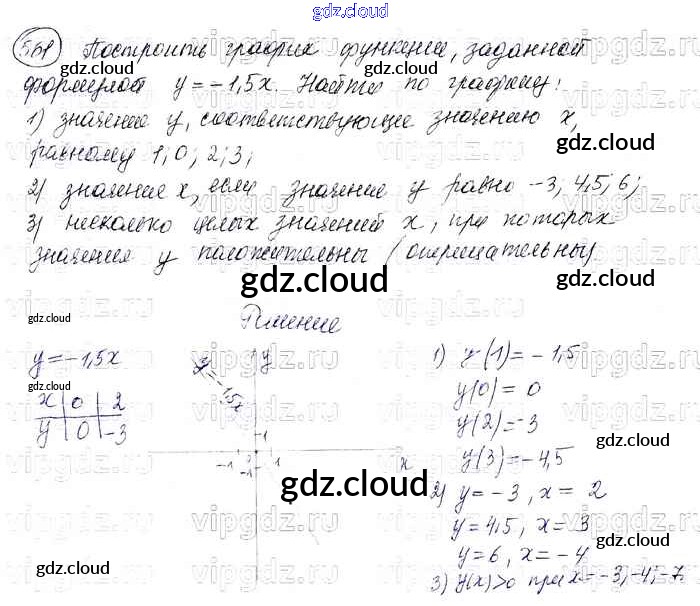 gdz.cloud
561 Построить график функции, заданной
формулой y = -1,5x. Найти по графику:
1) значение y, соответствующее значению x,
равному 1; 0; 2; 3;
2) значение x, если значение y равно -3; 4,5; 6;
3) несколько целых значений x, при которых
значения y положительны (отрицательны).
Решение
y = -1,5x
x | 0 | 2
y | 0 | -3
y = -1,5x
y
1
-1
-1
1
x
1) y(1) = -1,5
y(0) = 0
y(2) = -3
y(3) = -4,5
2) y = -3, x = 2
y = 4,5, x = 3
y = 6, x = -4
3) y(x)>0 при x = -3; -4; -7.
gdz.cloud
gdz.cloud
gdz.cloud
gdz.cloud
gdz.cloud
gdz.cloud
gdz.cloud
gdz.cloud
gdz.cloud
gdz.cloud
gdz.cloud
gdz.cloud